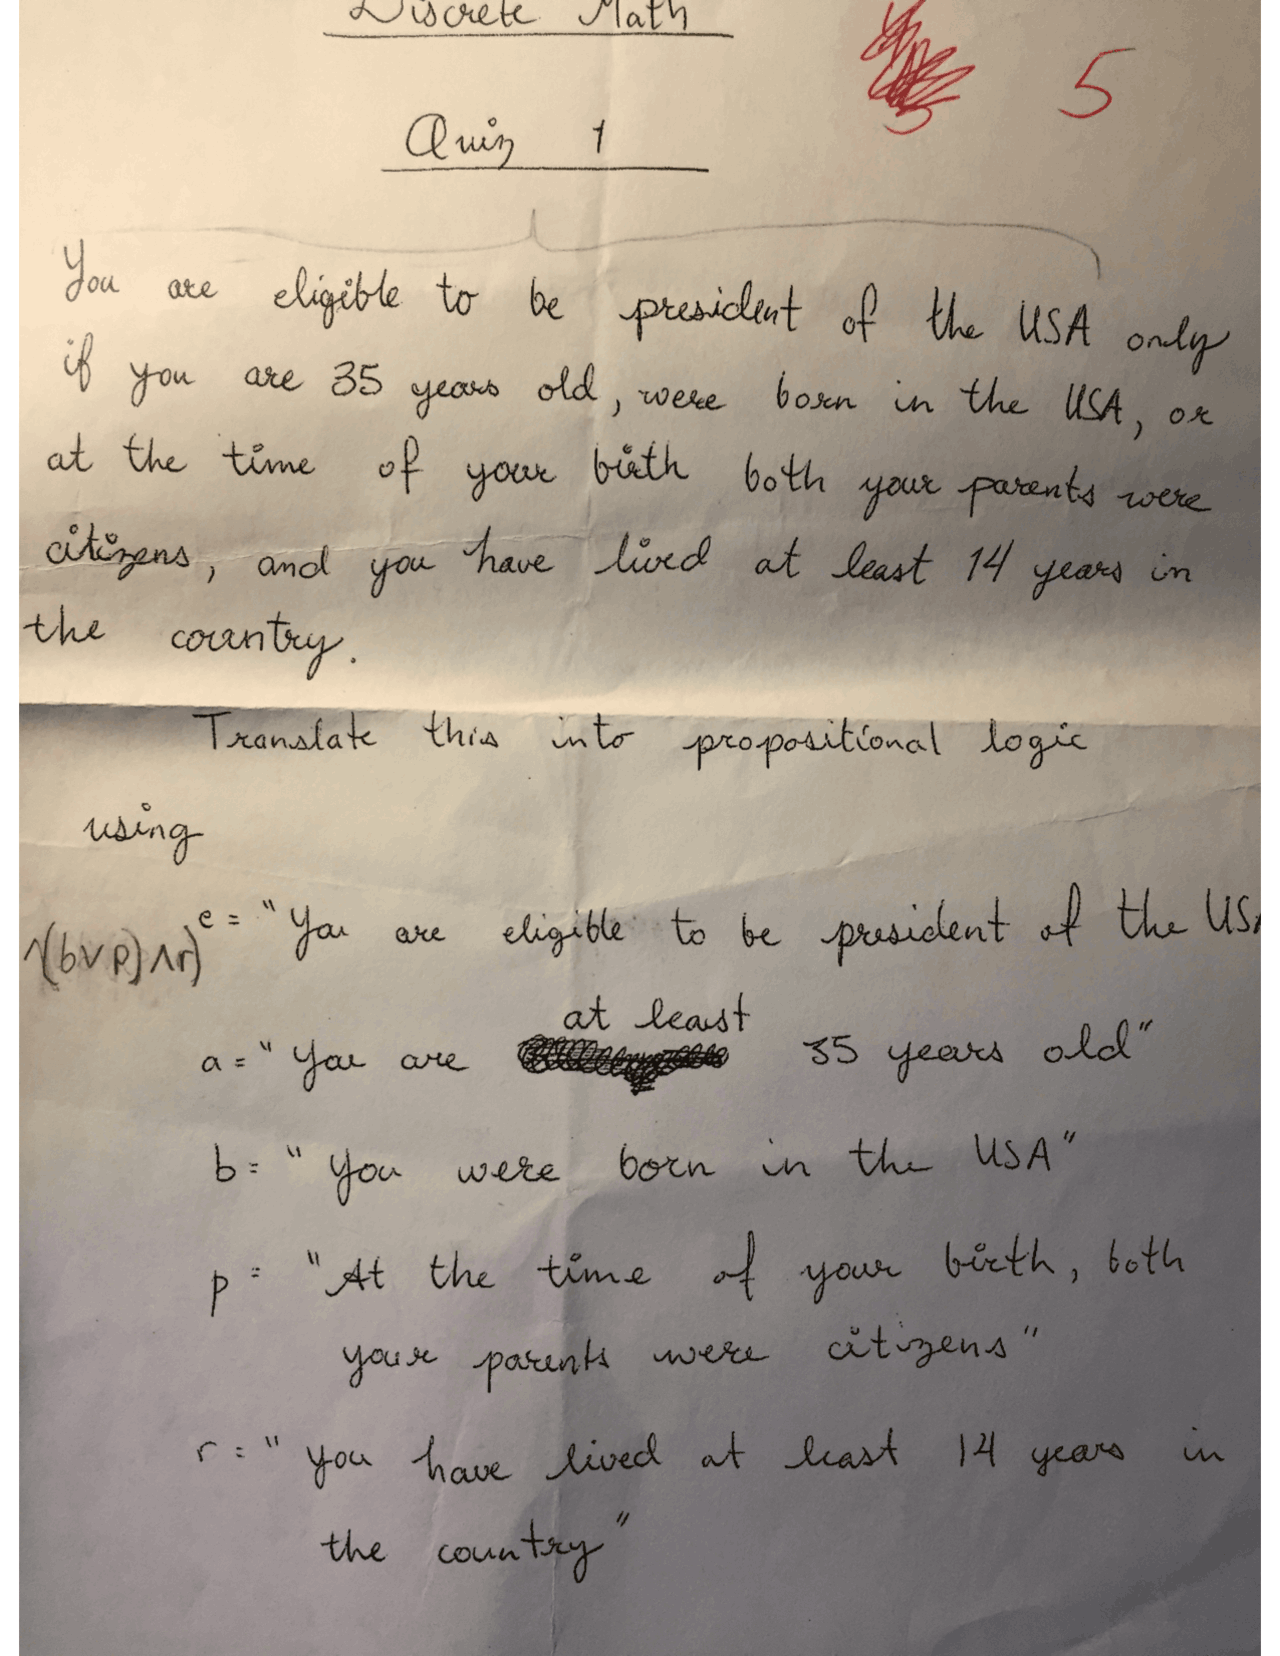 Discrete Math
5
Quiz 1
You are eligible to be president of the USA only
if you are 35 years old, were born in the USA, or
at the time of your birth both your parents were
citizens, and you have lived at least 14 years in
the country.
Translate this into propositional logic
using
e = "You are eligible to be president of the USA
∧(b∨p)∧r)
at least
a = "You are 35 years old"
b = "You were born in the USA"
p = "At the time of your birth, both
your parents were citizens"
r = "you have lived at least 14 years in
the country"